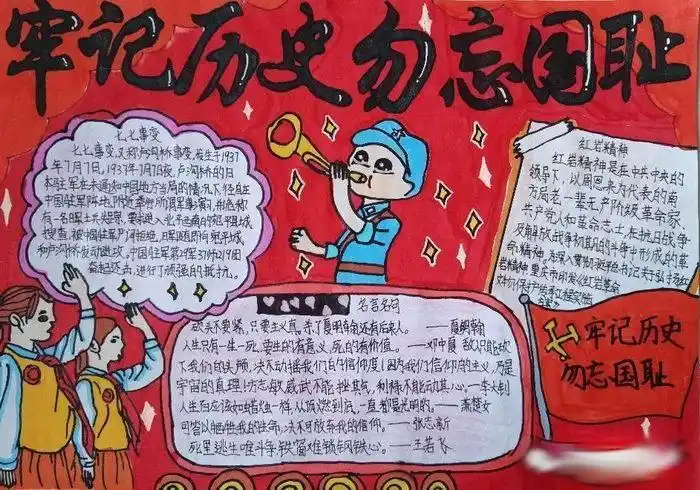 牢记历史勿忘国耻
七七事变
七七事变,又称卢沟桥事变,发生于1937
年7月7日,1937年7月7日夜,卢沟桥的日
本驻军在未通知中国地方当局的情况下,径自在
中国驻军阵地附近举行所谓军事演习,并诡称
有一名日军士兵失踪,要求进入北平西南的宛平县城
搜查,被中国驻军严词拒绝,日军随即向宛平城
和卢沟桥发动进攻。中国驻军第29军37师219团
奋起还击,进行了顽强的抵抗。
红岩精神
红岩精神是在中共中央的
领导下,以周恩来为代表的南
方局老一辈无产阶级革命家、
共产党人和革命志士,在抗日战争
及解放战争初期的斗争中形成的革
命精神。为深入贯彻
红岩精神,重庆市
名言名句
砍头不要紧,只要主义真,杀了夏明翰还有后来人。——夏明翰
人生只有一生一死,要生的有意义,死的有价值。——邓中夏 敌人只能砍
下我们的头颅,决不动摇我们的信仰!因为我们信仰的主义,乃是
宇宙的真理!方志敏 威武不能挫其气,利禄不能动其心。——李大钊
人生应该如蜡烛一样,从顶燃到底,一直都是光明的。——萧楚女
可以牺牲我的生命,决不可放弃我的信仰。——张志新
死里逃生唯斗争,铁窗难锁钢铁心。——王若飞
牢记历史
勿忘国耻